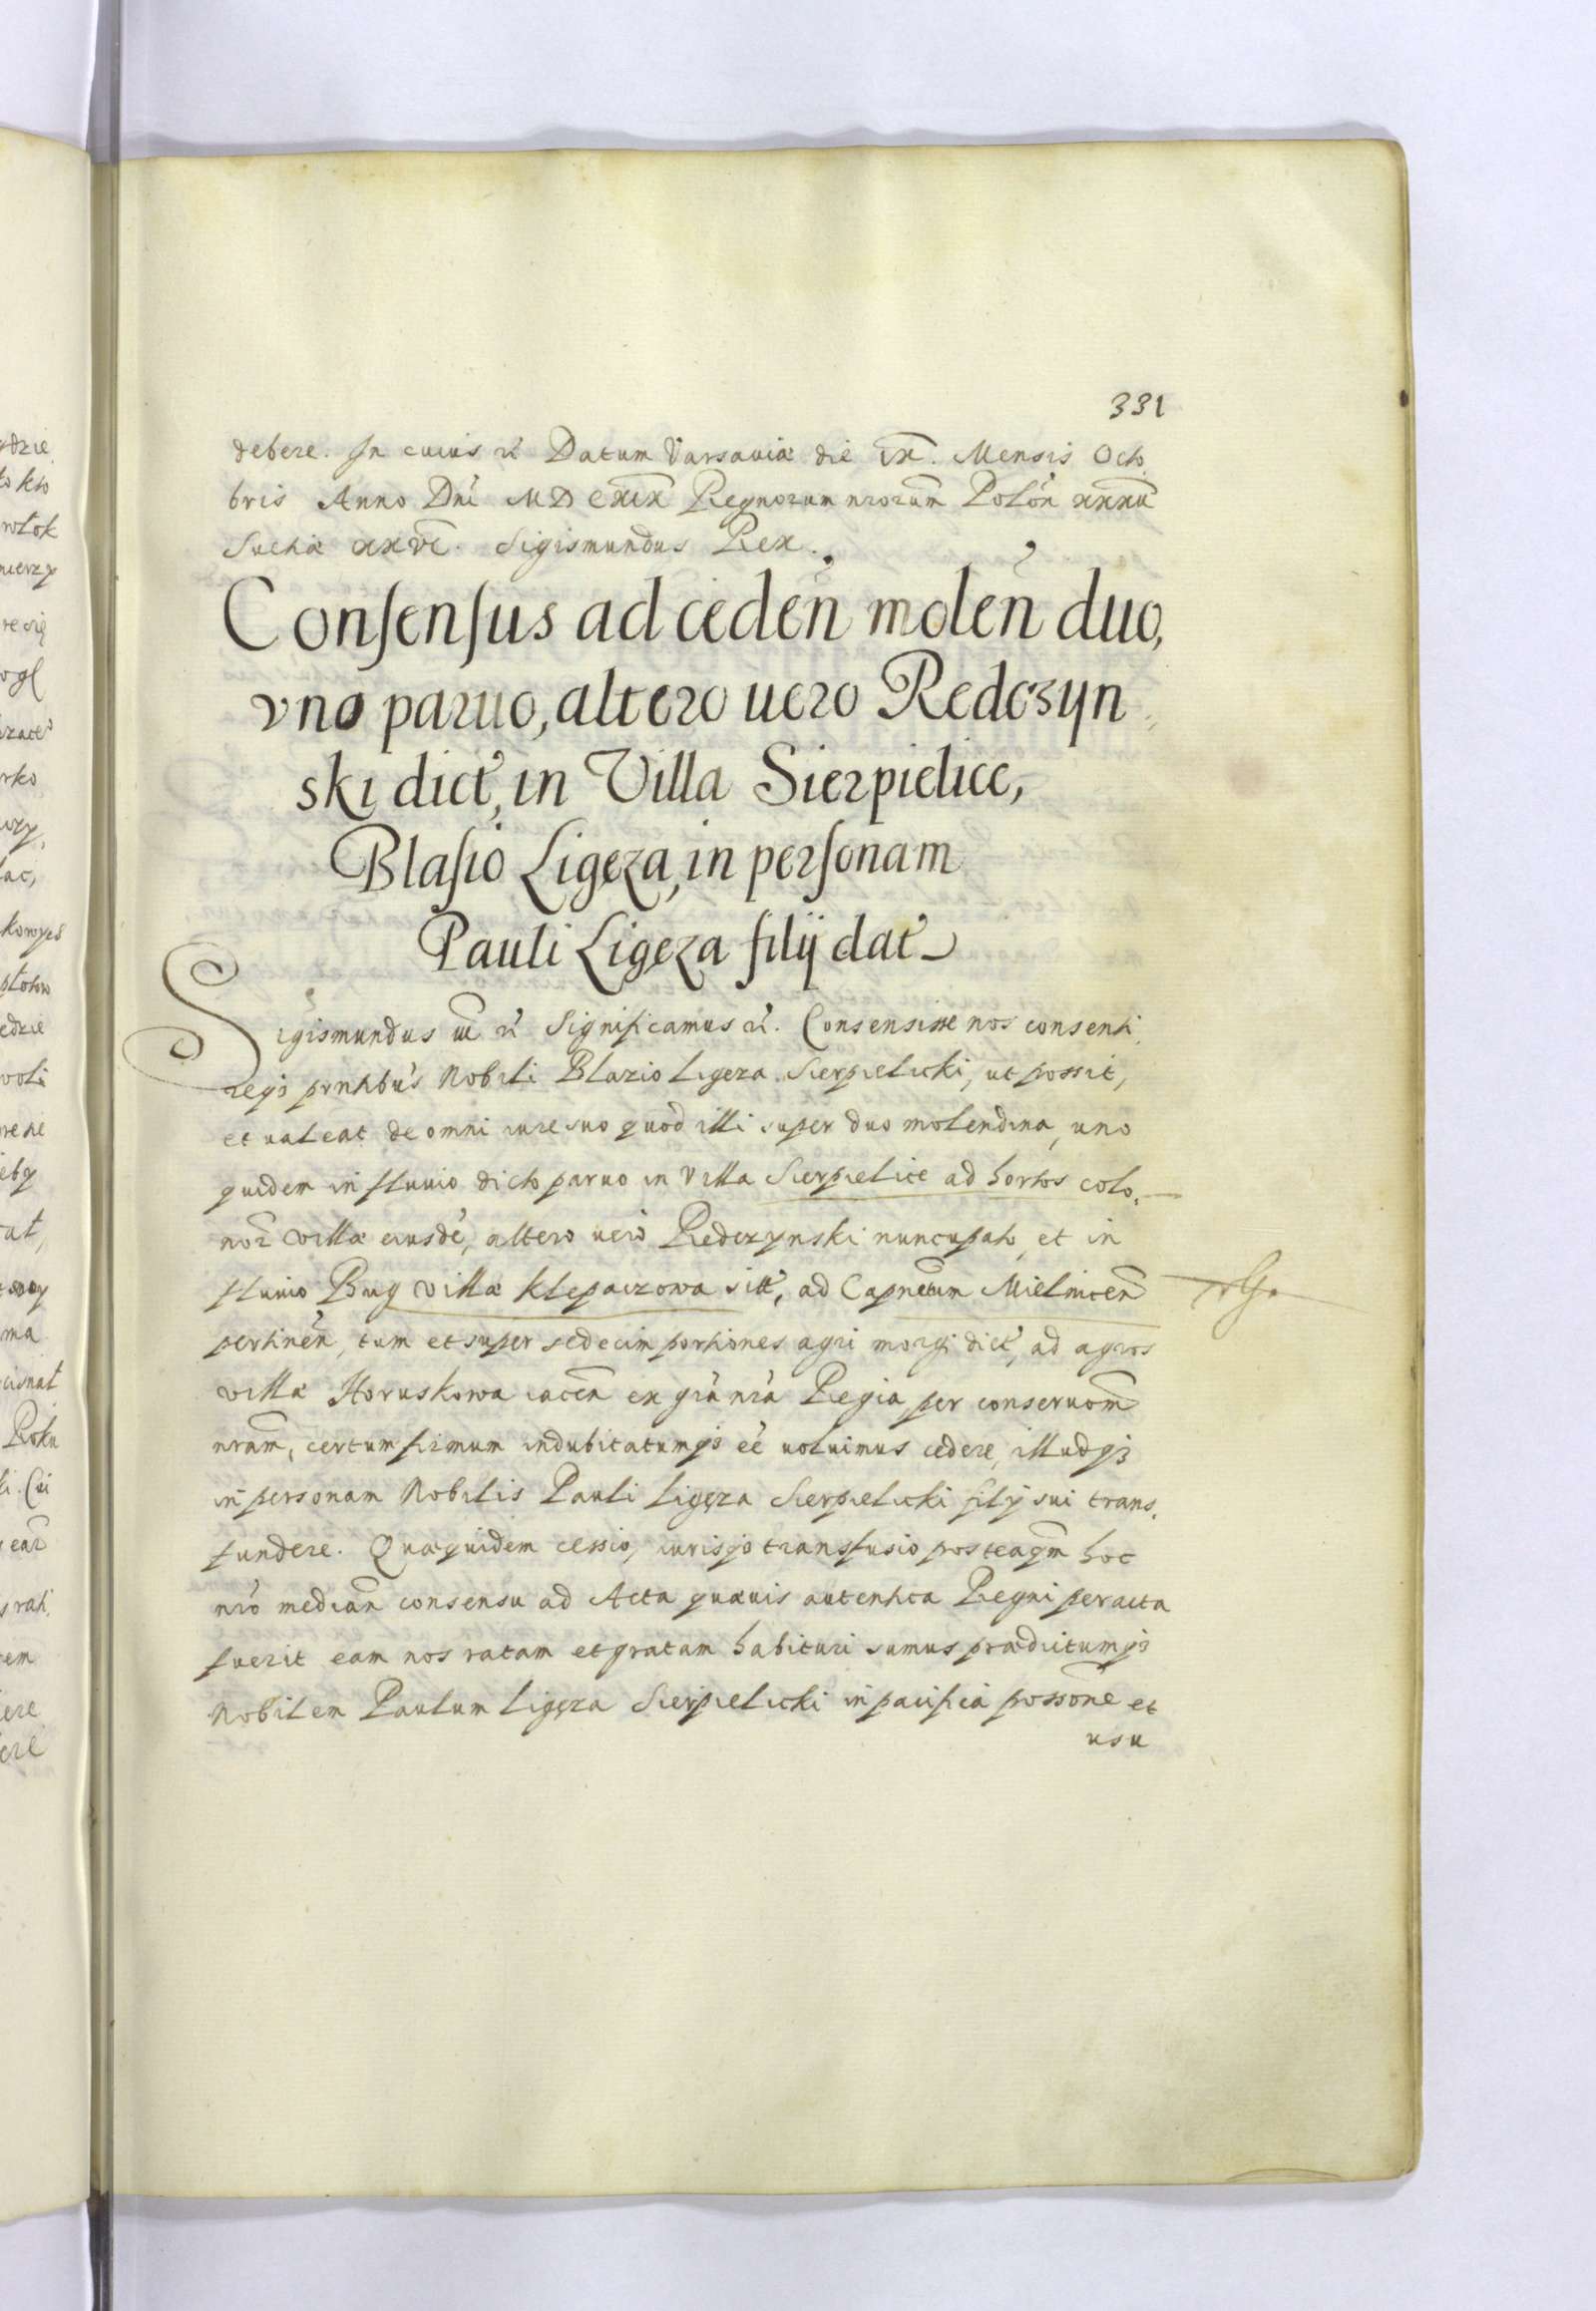 331
debere. In cuius rẽ Datum Varsaviæ die IX. Mensis Octo
bris Anno Dñi MDCXIX Regnorum nrorum Polon XXXII
Sueciæ XXVI. Sigismundus Rex.
Consensus ad ceden̄ molen̄ duo,
vno paruo, altero uero Redczyn
ski dict, in Villa Sierpielice,
Blasio Ligęza, in personam
Pauli Ligęza filij dat
Sigismundus III rẽ Significamus rẽ. Consensisse nos consenti
reqz prntibus Nobili Blazio Ligęza Sierpielicki, ut possit,
et ualeat de omni iure suo quod illi super duo molendina, uno
quidem in fluuio dicto paruo in Villa Sierpielice ad hortos colo,
nor villæ eiusdē, altero uero Redczynski nuncupato, et in
fluuio Bug villæ Klepaczowa sit, ad Capneum Mielnicen
pertinen, tum et super sedecim portiones agri morgi dict, ad agros
villæ Horuskowa iacen ex gra nra Regia, per conseruom
nram, certum firmum indubitatumqz eē uoluimus cedere, illudqz
in personam Nobilis Pauli Ligęza Sierpielicki filij sui trans,
fundere. Quæquidem cessio, iurisqz transfusio posteaqm hoc
nro median consensu ad Acta quæuis autentica Regni peracta
fuerit eam nos ratam et gratam habituri sumus prædictumqz
Nobilem Paulum Ligęza Sierpielicki in pacifica possone et
usu